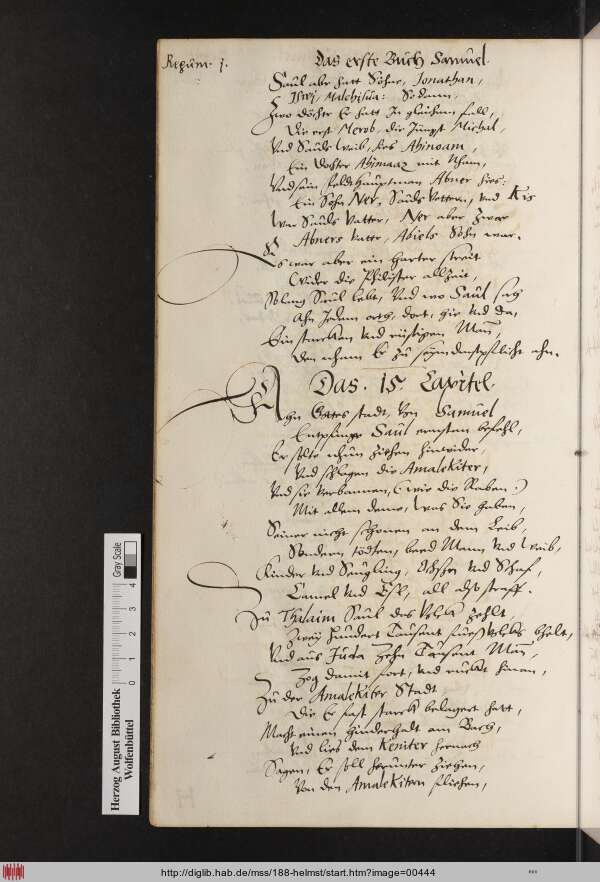 Regum. j.
Das erste Buch Samuel.
Saul aber hatt Söhne, Jonathan,
Iswj, Malchisua: So dann,
Zwo döchter Er hatt In gleichem fall,
Die erst Merob, die Jüngst Michal,
Vnd Sauls weib, hies Ahinoam,
Ein dochter Ahimaaz mit Nham,
Vnd sein feldthauptman Abner hies:
Ein Sohn Ner, Sauls Vettern, vnd Kis
War Sauls Vatter, Ner aber zwar
Abners Vatter, Abiels Sohn war.
Es war aber ein harter streit
Wider die Philister allzeit,
Solang Saul lebt, Vnd wo Saul sah
Ahn Jedem orth, dort, hie vnd da,
Ein starcken vnd rüstigen Man,
Den nham Er zu
Das. 15. Capitel.
Ahn Gottes stadt, von Samuel
Entpfinge Saul ernsten befehl,
Er solte nhun ziehen hinwider,
Vnd schlagen die Amalekiter,
Vnd sie verbannen, (wie die Raben:)
Mit allem deme, was Sie haben,
Seiner nicht schonen an dem Leib,
Sondern tödten, beyd Mann vnd weib,
Kinder vnd Seugling, Ochsen vnd Schaf,
Camel vnd Esel, all
Zu Thelaim Saul das Volck zehlt
Zwey hundert Tausent fues Volcks bhelt,
Vnd aus Juda Zehn Tausent Man,
Zog damit fort, vnd rückt hinan,
Zu der Amalekiter Stadt
Die Er fast starck belagert hatt,
Macht einen hinderhalt am Bach,
Vnd lies dem Keniter hernach
Sagen, Er soll herunter ziehen,
Von den Amalekitern fliehen,
Herzog August Bibliothek
Wolfenbüttel
Gray Scale
0 1 2 3 4
http://diglib.hab.de/mss/188-helmst/start.htm?image=00444